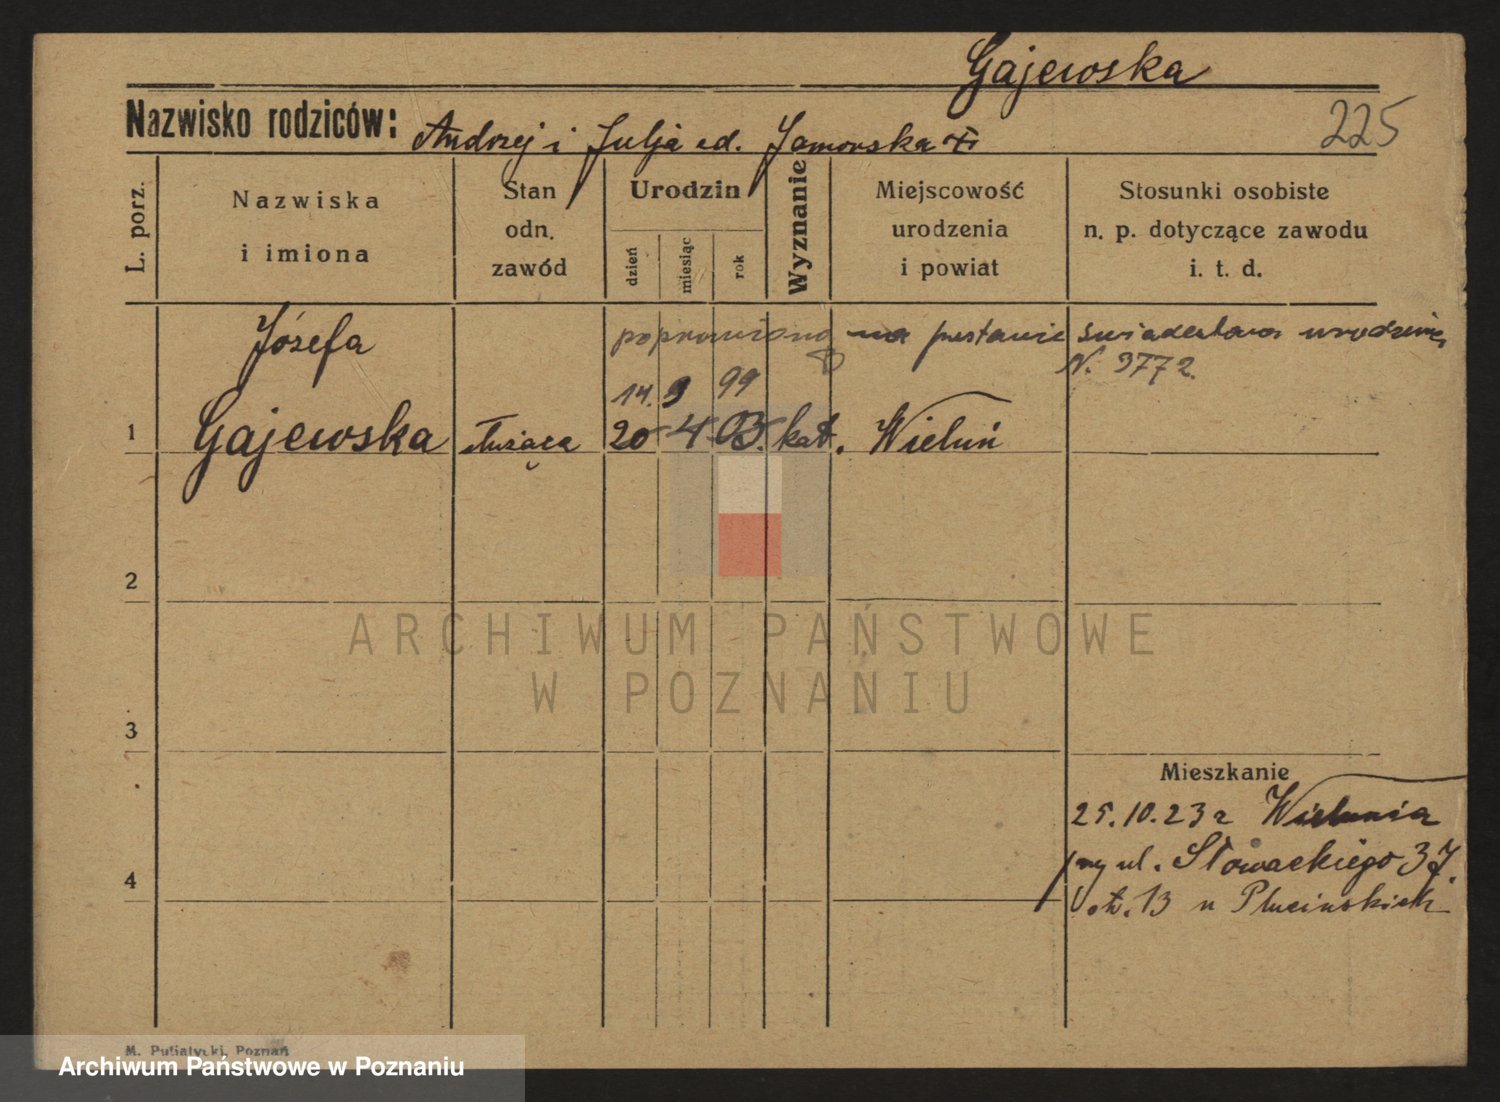 Gajewska
225
Nazwisko rodziców: Andrzej i Julja
L. porz.
Nazwiska
i imiona
Stan
odn.
zawód
Urodzin
dzień
miesiąc
rok
Wyznanie
Miejscowość
urodzenia
i powiat
Stosunki osobiste
n. p. dotyczące zawodu
i. t. d.
Józefa poprawiono na świadectwa
N. 3772.
14. 9 99
1 Gajewska służąca 20 4 03. kat. Wieluń
2
3
4
Mieszkanie
25.10.23 z Wielunia
przy ul. Słowackiego 37.
13 u Plucińskich
M. Putiatycki, Poznań
ARCHIWUM PAŃSTWOWE
W POZNANIU
Archiwum Państwowe w Poznaniu